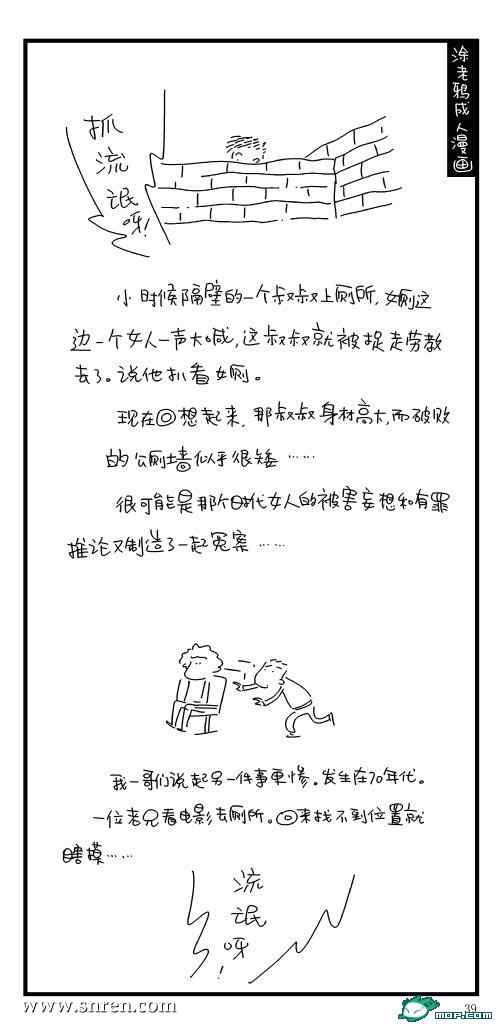 涂老鸦成人漫画
抓
流
氓
呀!
小时候隔壁的一个叔叔上厕所,女厕这
边一个女人一声大喊,这叔叔就被捉走劳教
去了。说他扒看女厕。
现在回想起来,那叔叔身材高大,而破败
的公厕墙似乎很矮……
很可能是那个时代女人的被害妄想和有罪
推论又制造了一起冤案……
我一哥们说起另一件事更惨。发生在70年代。
一位老兄看电影去厕所。回来找不到位置就
瞎摸……
流
氓
呀
!
www.snren.com
39
MOP.COM